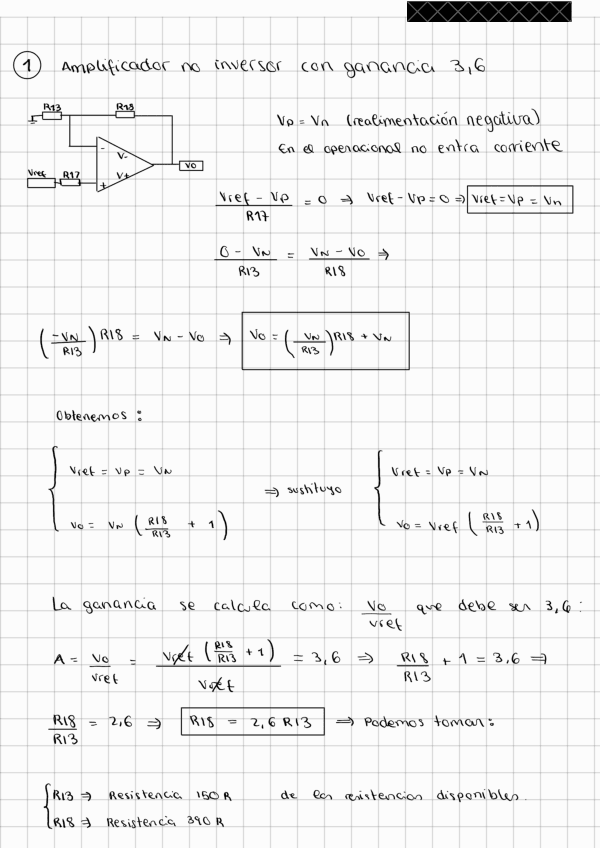 1 Amplificador no inversor con ganancia 3,6
R13 R18
Vp = Vn (realimentación negativa)
En el operacional no entra corriente
- V-
V+ +
VO
Vref R17
(Vref - Vp)/R17 = 0 ⇒ Vref - Vp = 0 ⇒ Vref = Vp = Vn
(0 - VN)/R13 = (VN - VO)/R18 ⇒
(-VN/R13) R18 = VN - VO ⇒ VO = (VN/R13) R18 + VN
Obtenemos:
Vref = Vp = VN
VO = VN (R18/R13 + 1)
⇒ sustituyo
Vref = Vp = VN
VO = Vref (R18/R13 + 1)
La ganancia se calcula como: VO/Vref que debe ser 3,6:
A = VO/Vref = Vref (R18/R13 + 1)/Vref = 3,6 ⇒ R18/R13 + 1 = 3,6 ⇒
R18/R13 = 2,6 ⇒ R18 = 2,6 R13 ⇒ Podemos tomar:
R13 ⇒ Resistencia 150 R de las resistencias disponibles.
R18 ⇒ Resistencia 390 R